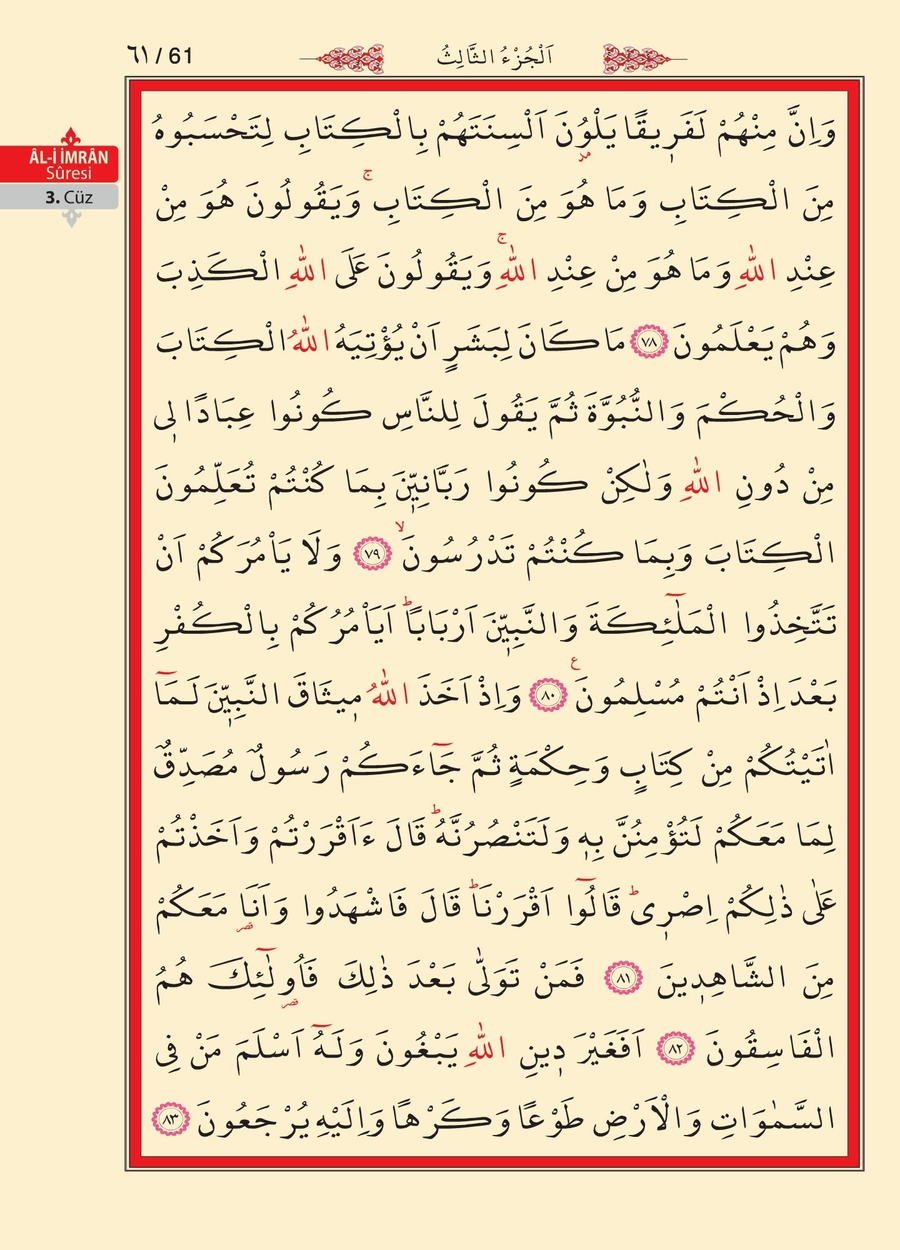 ٦١ / 61
اَلْجُزْءُ الثَّالِثُ
ÂL-İ İMRÂN
Sûresi
3. Cüz
وَاِنَّ مِنْهُمْ لَفَرٖيقًا يَلْوُ۫نَ اَلْسِنَتَهُمْ بِالْكِتَابِ لِتَحْسَبُوهُ
مِنَ الْكِتَابِ وَمَا هُوَ مِنَ الْكِتَابِۚ وَيَقُولُونَ هُوَ مِنْ
عِنْدِ اللّٰهِ وَمَا هُوَ مِنْ عِنْدِ اللّٰهِۚ وَيَقُولُونَ عَلَى اللّٰهِ الْكَذِبَ
وَهُمْ يَعْلَمُونَ ﴿٧٨﴾ مَا كَانَ لِبَشَرٍ اَنْ يُؤْتِيَهُ اللّٰهُ الْكِتَابَ
وَالْحُكْمَ وَالنُّبُوَّةَ ثُمَّ يَقُولَ لِلنَّاسِ كُونُوا عِبَادًا لٖى
مِنْ دُونِ اللّٰهِ وَلٰكِنْ كُونُوا رَبَّانِيّٖنَ بِمَا كُنْتُمْ تُعَلِّمُونَ
الْكِتَابَ وَبِمَا كُنْتُمْ تَدْرُسُونَۙ ﴿٧٩﴾ وَلَا يَاْمُرَكُمْ اَنْ
تَتَّخِذُوا الْمَلٰٓئِكَةَ وَالنَّبِيّٖنَ اَرْبَابًاؕ اَيَاْمُرُكُمْ بِالْكُفْرِ
بَعْدَ اِذْ اَنْتُمْ مُسْلِمُونَ ﴿٨٠﴾ ع وَاِذْ اَخَذَ اللّٰهُ مٖيثَاقَ النَّبِيّٖنَ لَمَٓا
اٰتَيْتُكُمْ مِنْ كِتَابٍ وَحِكْمَةٍ ثُمَّ جَٓاءَكُمْ رَسُولٌ مُصَدِّقٌ
لِمَا مَعَكُمْ لَتُؤْمِنُنَّ بِهٖ وَلَتَنْصُرُنَّهُؕ قَالَ ءَاَقْرَرْتُمْ وَاَخَذْتُمْ
عَلٰى ذٰلِكُمْ اِصْرٖىؕ قَالُٓوا اَقْرَرْنَاؕ قَالَ فَاشْهَدُوا وَاَنَا۬ مَعَكُمْ
مِنَ الشَّاهِدٖينَ ﴿٨١﴾ فَمَنْ تَوَلّٰى بَعْدَ ذٰلِكَ فَاُو۬لٰٓئِكَ هُمُ
الْفَاسِقُونَ ﴿٨٢﴾ اَفَغَيْرَ دٖينِ اللّٰهِ يَبْغُونَ وَلَهُٓ اَسْلَمَ مَنْ فِى
السَّمٰوَاتِ وَالْاَرْضِ طَوْعًا وَكَرْهًا وَاِلَيْهِ يُرْجَعُونَ ﴿٨٣﴾